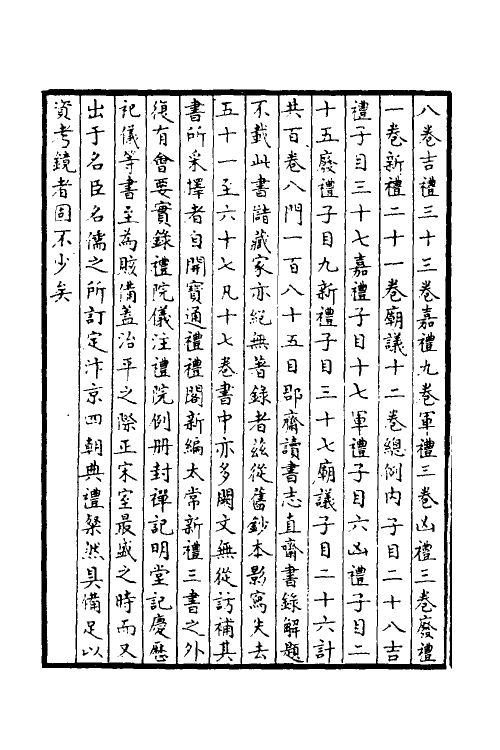 八卷吉禮三十三卷嘉禮九卷軍禮三卷凶禮三卷廢禮
一卷新禮二十一卷廟議十二卷總例內子目二十八吉
禮子目三十七嘉禮子目十七軍禮子目六凶禮子目二
十五廢禮子目九新禮子目三十七廟議子目二十六計
共百卷八門一百八十五目郡齋讀書志直齋書錄解題
不載此書諸藏家亦絕無著錄者茲從舊鈔本影寫失去
五十一至六十七凡十七卷書中亦多闕文無從訪補其
書所采擇者自開寶通禮禮閣新編太常新禮三書之外
復有會要實錄禮院儀注禮院例册封禪記明堂記慶歷
祀儀等書至為賅備蓋治平之際正宋室最盛之時而又
出于名臣名儒之所訂定汴京四朝典禮粲然具備足以
資考鏡者固不少矣